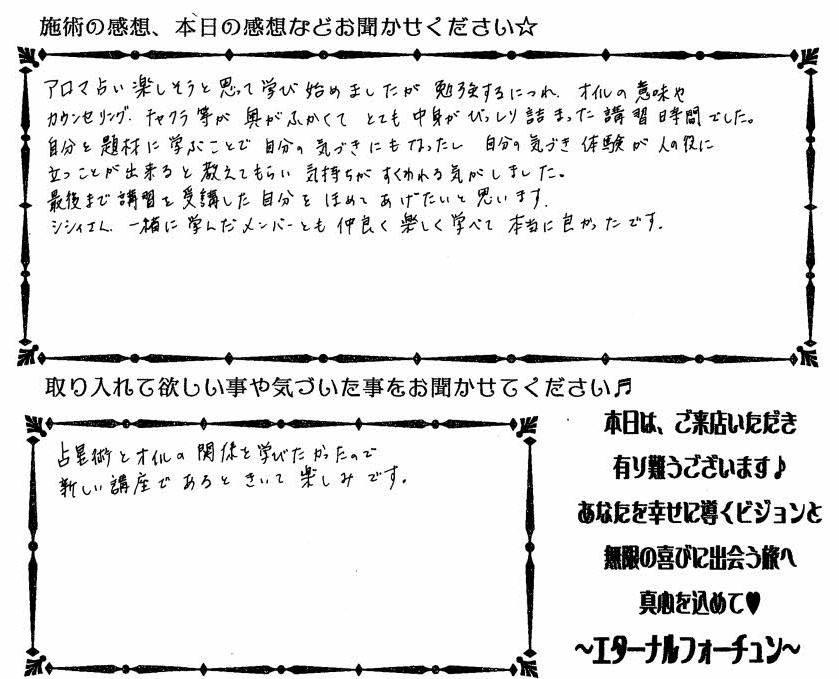 施術の感想、本日の感想などお聞かせください☆
アロマ占い楽しそうと思って学び始めましたが 勉強するにつれ、オイルの意味や
カウンセリング、チャクラ等が 奥がふかくて とても 中身がびっしり詰まった講習時間でした。
自分を題材に学ぶことで 自分の気づきにもなったし 自分の気づき 体験が人の役に
立つことが出来ると教えてもらい 気持ちが すくわれる気がしました。
最後まで講習を受講した自分を ほめて あげたいと思います。
シシィさん、一緒に学んだメンバーとも 仲良く楽しく学べて 本当に良かったです。
取り入れて欲しい事や気づいた事をお聞かせてください♬
占星術とオイルの関係を学びたかったので
新しい講座で あるときいて 楽しみです。
本日は、ご来店いただき
有り難うございます♪
あなたを幸せに導くビジョンと
無限の喜びに出会う旅へ
真心を込めて♥
～エターナルフォーチュン～